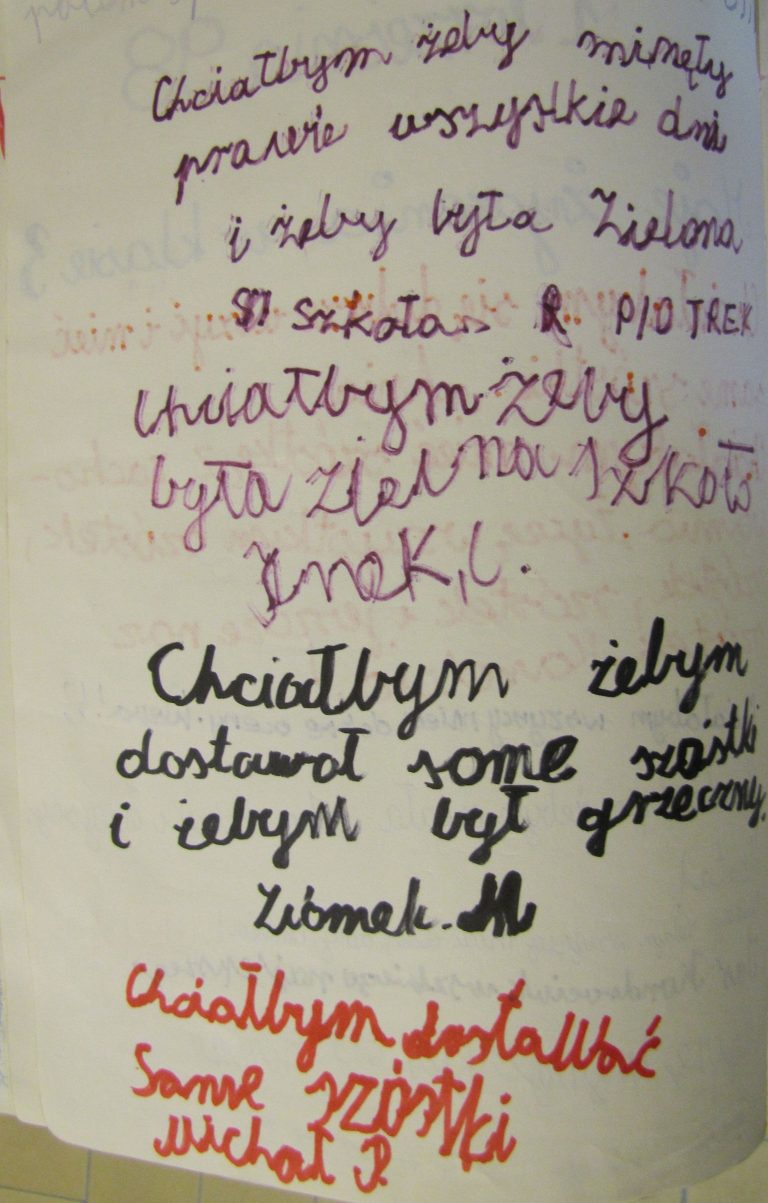 Chciałbym żeby minęły
prawie wszystkie dni
i żeby była Zielona
szkoła R PIOTREK
Chciałbym żeby
była zielona szkoła
Chciałbym żebym
dostawał same szóstki
i żebym był grzeczny.
Ziomek. M
Chciałbym dostawać
Same szóstki
Michał P.